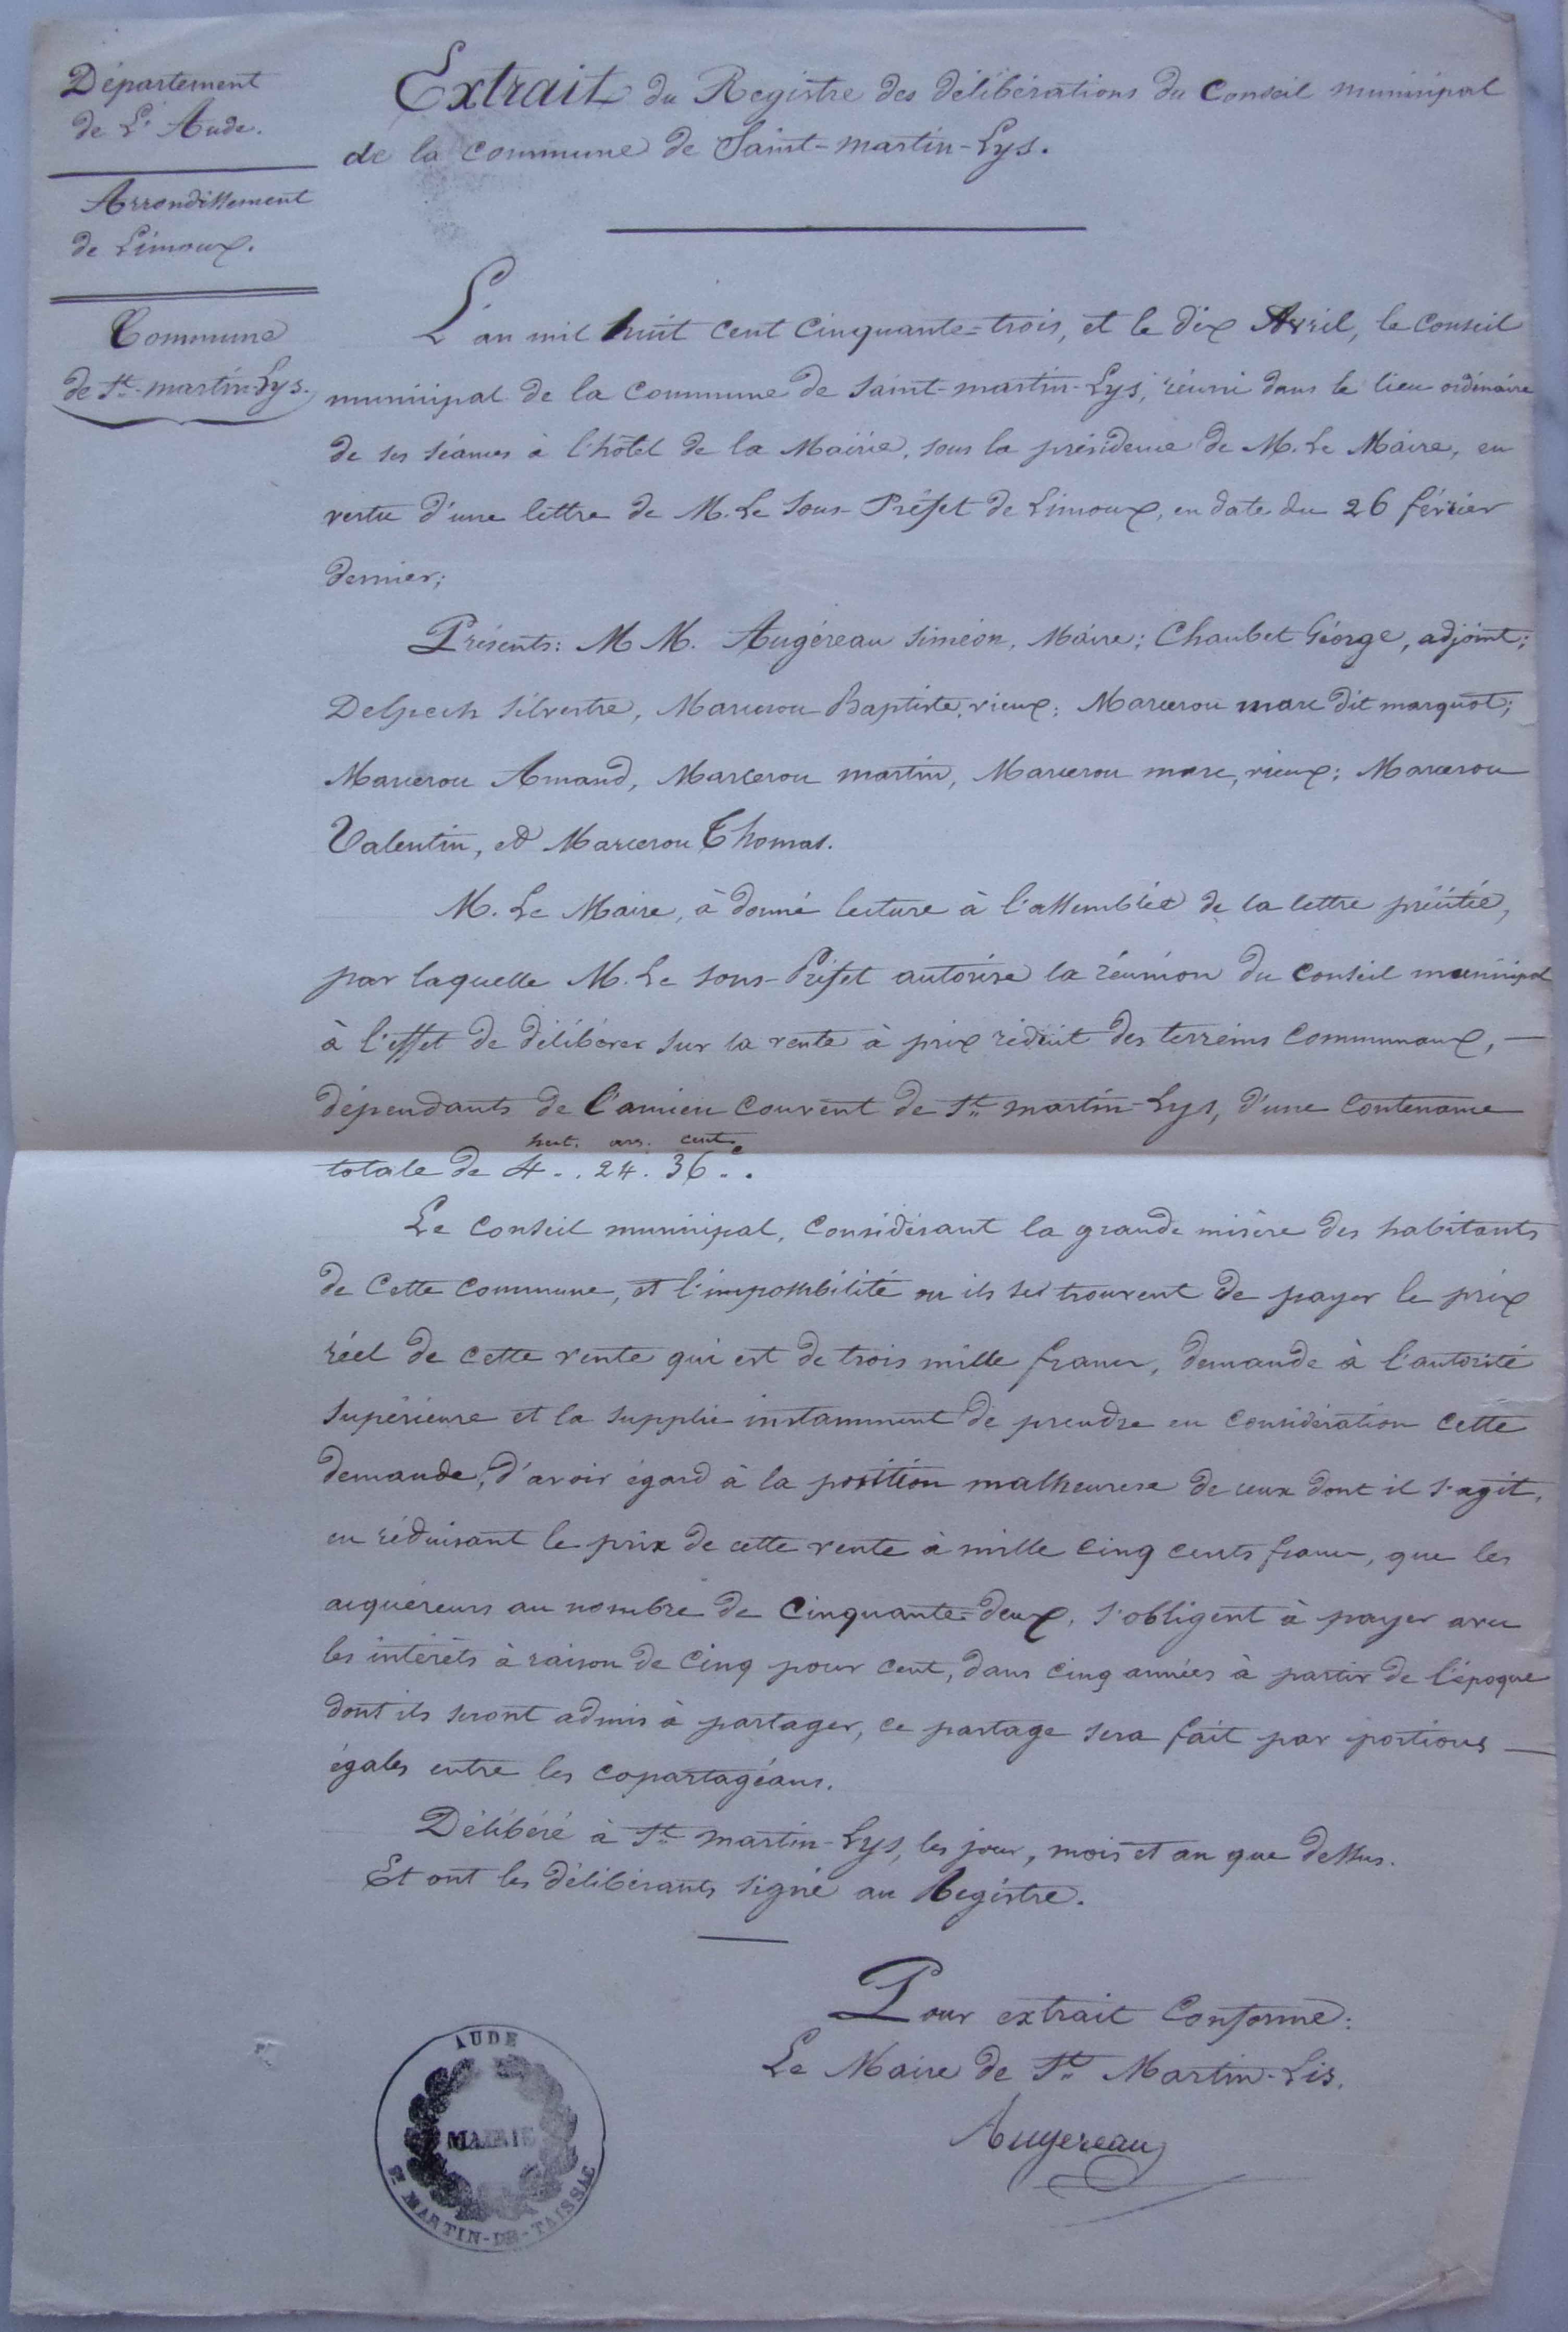 Département
de L'Aude.
Arrondissement
de Limoux.
Commune
de St. martin-Lys.
Extrait du Registre des délibérations du Conseil municipal
de la Commune de Saint-martin-Lys.
L'an mil huit cent cinquante-trois, et le dix Avril, le conseil
municipal de la Commune de Saint-martin-Lys, réuni dans le lieu ordinaire
de ses séances à l'hôtel de la Mairie, sous la présidence de M. Le Maire, en
vertu d'une lettre de M. Le Sous-Préfet de Limoux, en date du 26 février
dernier;
Présents: M M. Augéreau Siméon, Maire; Chaubet Géorge, adjoint;
Delpech Silvestre, Marcerou Baptiste, vieux; Marcerou marc dit marquot;
Marcerou Amand, Marcerou martin, Marcerou marc, vieux; Marcerou
Valentin, et Marcerou Thomas.
M. Le Maire, à donné lecture à l'assemblée de la lettre précitée,
par laquelle M. Le Sous-Préfet autorise la réunion du Conseil municipal
à l'effet de délibérer sur la vente à prix réduit des terreins Communaux, —
dépendants de l'ancien Couvent de St. martin-Lys, d'une Contenance
hect. ars. cent.
totale de 4 . . 24 . 36 . .
Le Conseil municipal, Considérant la grande misère des habitants
de Cette Commune, et l'impossibilité ou ils se trouvent de payer le prix
réel de cette vente qui est de trois mille francs, demande à l'autorité
Supérieure et la supplie instamment de prendre en Considération Cette
demande, d'avoir égard à la position malheureuse de ceux dont il s'agit,
en réduisant le prix de cette vente à mille cinq cents francs, que les
acquéreurs au nombre de Cinquante-deux, s'obligent à payer avec
les intérêts à raison de Cinq pour Cent, dans cinq années à partir de l'époque
dont ils seront admis à partager, ce partage sera fait par portions —
égales entre les copartagéans.
Délibéré à St. martin-Lys, les jour, mois et an que dessus.
Et ont les délibérants signé au Régistre.
Pour extrait Conforme:
Le Maire de St. Martin-Lis.
Augereau
AUDE
MAIRIE
St MARTIN-DE-TAISSAC